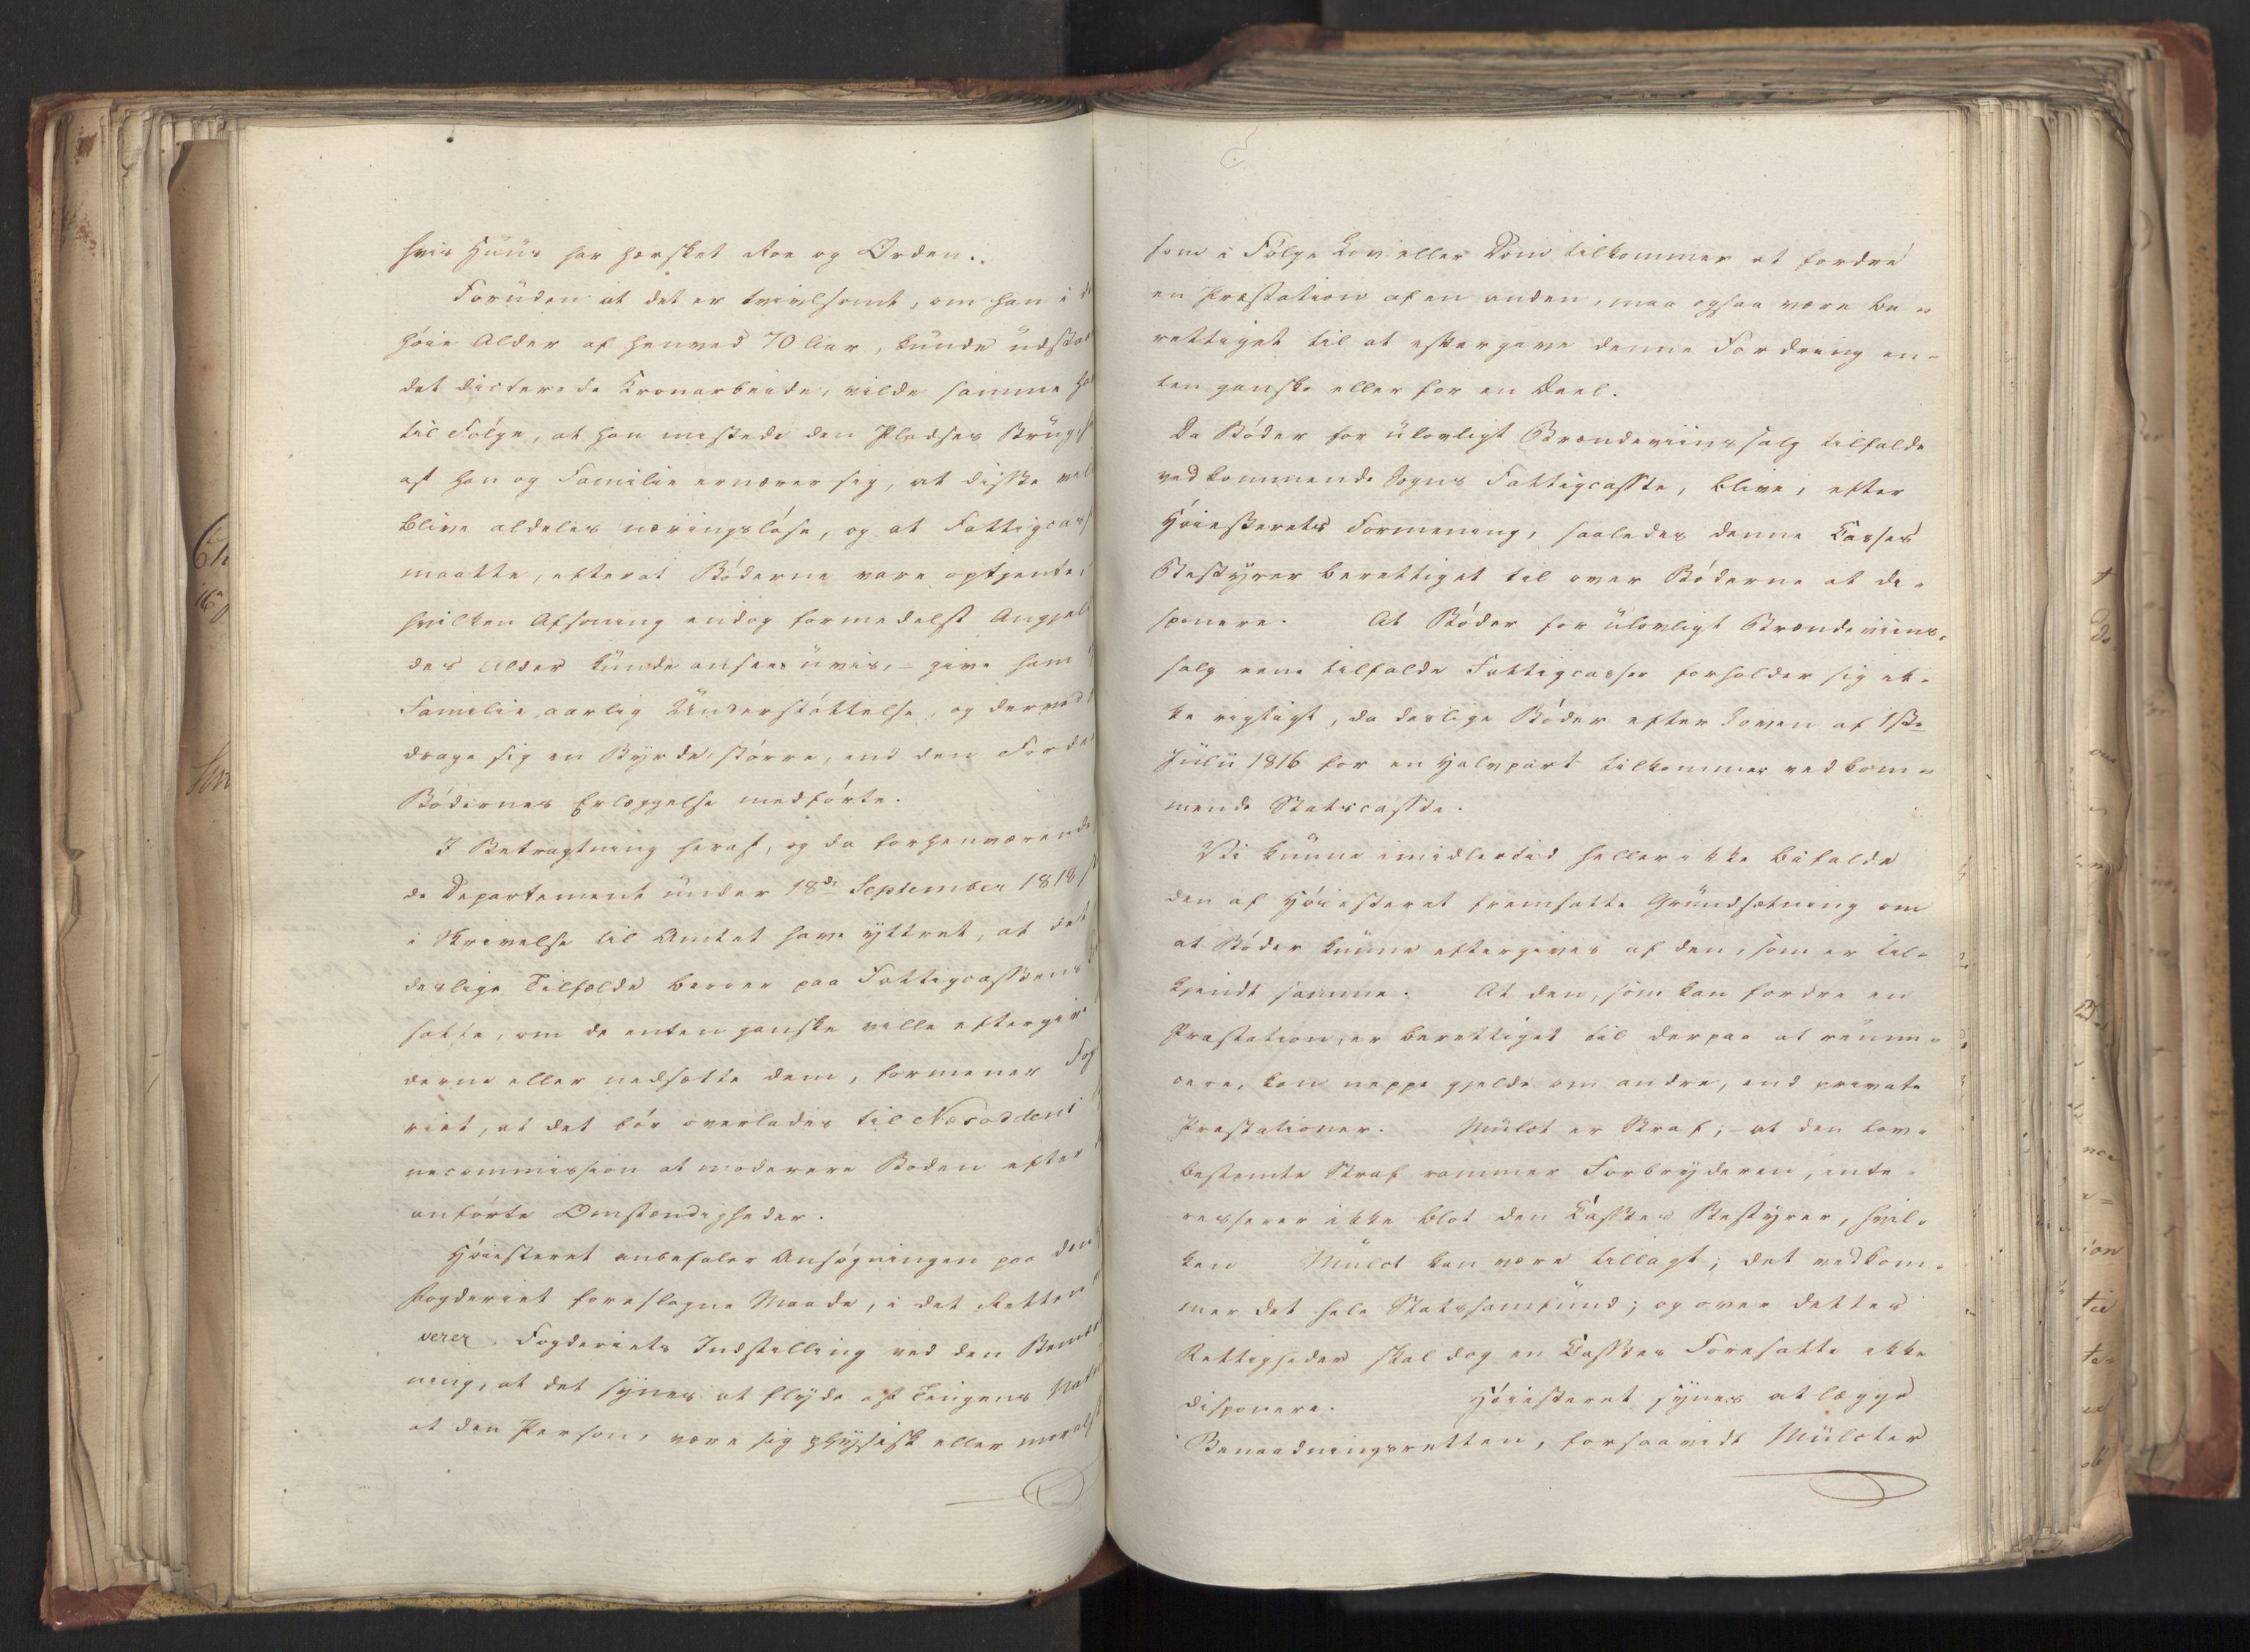 hvis Huus har hersket Roe og Orden.
Foruden at det er tvivlsomt, om han i d
høie Alder af henved 70 Aar, kunde udstaa
det dicterede Kronarbeide, vilde samme ha
til Følge, at han mistede den Pladses Brug,
af han og Familie ernærer sig, at disse
blive aldeles næringsløse, og at Fattigcass
maatte, efterat Bøderne vare optjente,
hvilken Afsoning endog formedelst Angjel
des Alder kunde ansees uvis, – give ham
Familie aarlig Understøttelse, og derved
drage sig en Byrde, større, end den Forde
Bødernes Erlæggelse medførte.
I Betragtning heraf, og da forhenværende
de Departement under 18de September 1818
i Skrivelse til Amtet have yttret, at det
deslige Tilfælde beroer paa Fattigcassens
satte, om de enten ganske ville eftergiv
derne eller nedsætte dem, formener Fog
riet, at det bør overlades til Nesoddens
necommission at moderere Boden efter
anførte Omstændigheder.
Høiesteret anbefaler Ansøgningen paa den
Fogderiet foreslagne Maade, i det Retten
verer Fogderiets Indstilling ved den Bemær
ning, at det synes at flyde af Tingens Nat
at den Person, være sig physisk eller moralsk
som i Følge Lov eller Dom tilkommer at fordre
en Præstation af en anden, maa ogsaa være be-
rettiget til at eftergive denne Fordring en-
ten ganske eller for en Deel.
Da Bøder for ulovligt Brændeviinssalg tilfalde
vedkommende Sogns Fattigcasse, blive, efter
Høiesterets Formening, saaledes denne Casses
Bestyrer berettiget til over Bøderne at di-
sponere. At Bøder for ulovligt Brændeviins-
salg ene tilfalde Fattigcasser forholder sig ik-
ke rigtigt, da deslige Bøder efter Loven af 1ste
Julii 1816 for en Halvpart tilkommer vedkom-
mende Statscasse.
Vi kunne imidlertid heller ikke bifalde
den af Høiesteret fremsatte Grundsætning om
at Bøder kunne eftergives af den, som er til-
kjendt samme. At den, som kan fordre en
Præstation, er berettiget til derpaa at renun-
cere, kan neppe gjelde om andre, end private
Præstationer. Mulct er Straf; – at den lov-
bestemte Straf rammer Forbryderen, inte-
resserer ikke blot den Casses Bestyrer, hvil-
ken Mulct kan være tillagt; det vedkom-
mer det hele Statssamfund; og over dettes
Rettigheder skal dog en Casses Foresatte ikke
disponere. Høiesteret synes at lægge
Benaadningsretten, forsaavidt Mulcter